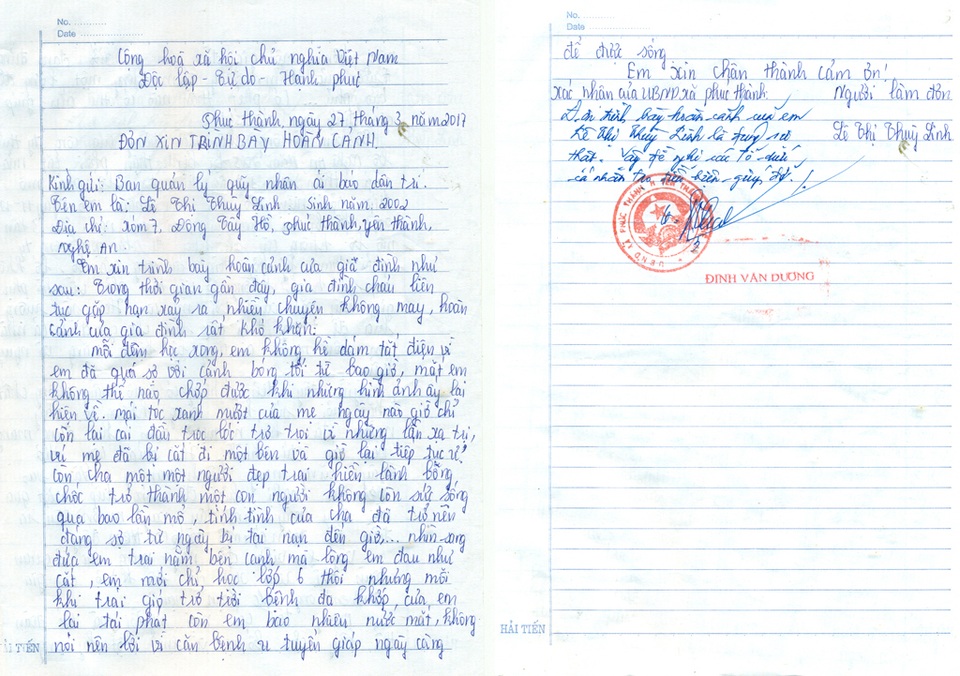 No. ............
Date .......................
Cộng hoà xã hội chủ nghĩa Việt Nam
Độc lập - Tự do - Hạnh phúc
Phúc thành, ngày 27 tháng 3 năm 2017
ĐƠN XIN TRÌNH BÀY HOÀN CẢNH.
Kính gửi: Ban quản lý quỹ nhân ái báo dân trí.
Tên em là: Lê Thị Thuỳ Linh Sinh năm: 2002
Địa chỉ: xóm 7, Đông Tây Hồ, phúc thành, yên thành,
Nghệ An.
Em xin trình bày hoàn cảnh của giâ đình như
sau: Trong thời gian gần đây, gia đình cháu liên
tục gặp hạn xảy ra nhiều chuyện không may, hoàn
cảnh của gia đình rất khó khăn.
mỗi đêm học xong, em không hề dám tắt điện vì
em đã quá sợ với cảnh bóng tối từ bao giờ, mắt em
không thể nào chớp được khi những hình ảnh ấy lại
hiện về. mái tóc xanh mướt của mẹ ngày nào giờ chỉ
còn lại cái đầu trọc lóc trơ trọi vì những lần xạ trị,
vú mẹ đã bị cắt đi một bên và giờ lại tiếp tục
còn cha một một người đẹp trai hiền lành bỗng
chốc trở thành một con người không còn sức sống
qua bao lần mổ, tính tình của cha đã trở nên
đáng sợ từ ngày bị tai nạn đến giờ,... nhìn sang
đứa em trai nằm bên cạnh mà lòng em đau như
cắt, em mới chỉ học lớp 6 thôi nhưng mỗi
khi trái gió trở trời bệnh đa khớp của em
lại tái phát còn em bao nhiêu nước mắt, không
nói nên lời vì căn bệnh u tuyến giáp ngày càng
HẢI TIẾN
No. ............
Date .......................
để được sống
Em xin chân thành cảm ơn!
Xác nhận của UBND xã phúc thành. Người làm đơn
trình bày hoàn cảnh của em
Lê Thị Thuỳ Linh là đúng sự Lê Thị Thuỳ Linh
thật. Vậy đề nghị các tổ chức
cá nhân tạo điều kiện giúp đỡ.
ĐINH VĂN DƯƠNG
HẢI TIẾN